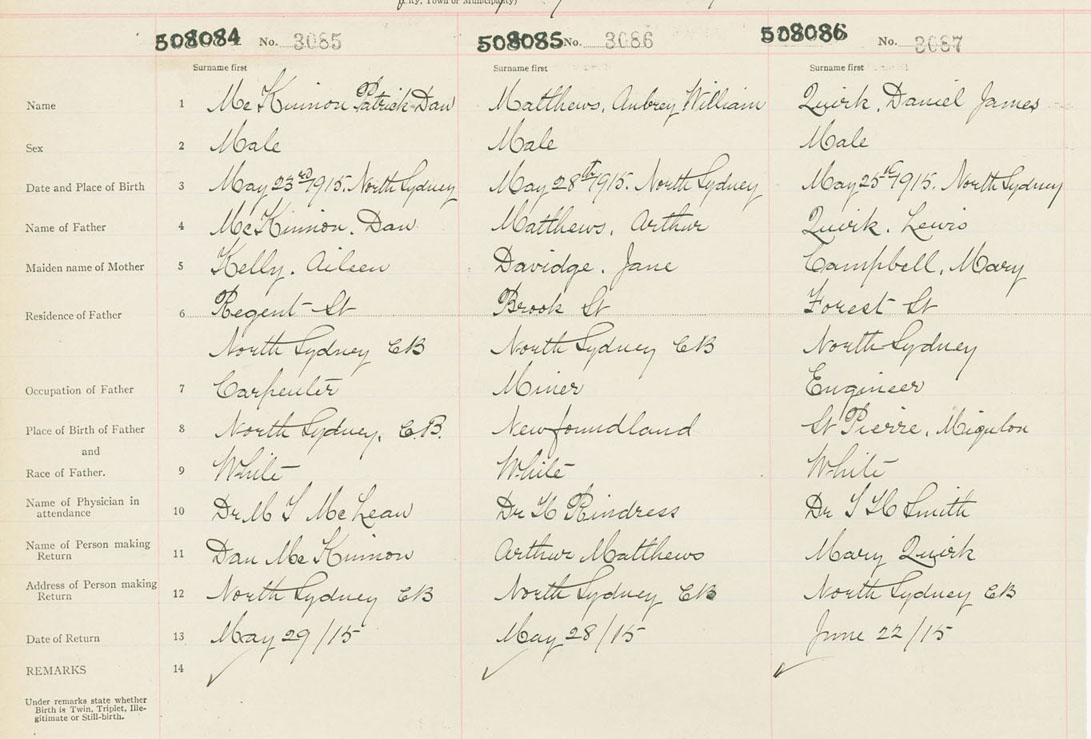 (City, Town or Municipality)
508084 No. 3085 508085 No. 3086 508086 No. 3087
Surname first Surname first Surname first
Name 1 McKinnon Patrick Dan Matthews, Aubrey William Quirk, Daniel James
Sex 2 Male Male Male
Date and Place of Birth 3 May 23rd 1915. North Sydney May 28th 1915. North Sydney May 25th 1915. North Sydney
Name of Father 4 McKinnon. Dan Matthews, Arthur Quirk. Lewis
Maiden name of Mother 5 Kelly. Aileen Davidge. Jane Campbell, Mary
Residence of Father 6 Regent St Brook St Forest St
North Sydney CB North Sydney CB North Sydney
Occupation of Father 7 Carpenter Miner Engineer
Place of Birth of Father 8 North Sydney, C.B. Newfoundland St Pierre, Miqulon
and
Race of Father. 9 White White White
Name of Physician in
attendance 10 Dr M McLean Dr Rindress Dr Smith
Name of Person making
Return 11 Dan McKinnon Arthur Matthews Mary Quirk
Address of Person making
Return 12 North Sydney CB North Sydney CB North Sydney CB
Date of Return 13 May 29/15 May 28/15 June 22/15
REMARKS 14
Under remarks state whether
Birth is Twin, Triplet, Ille-
gitimate or Still-birth.